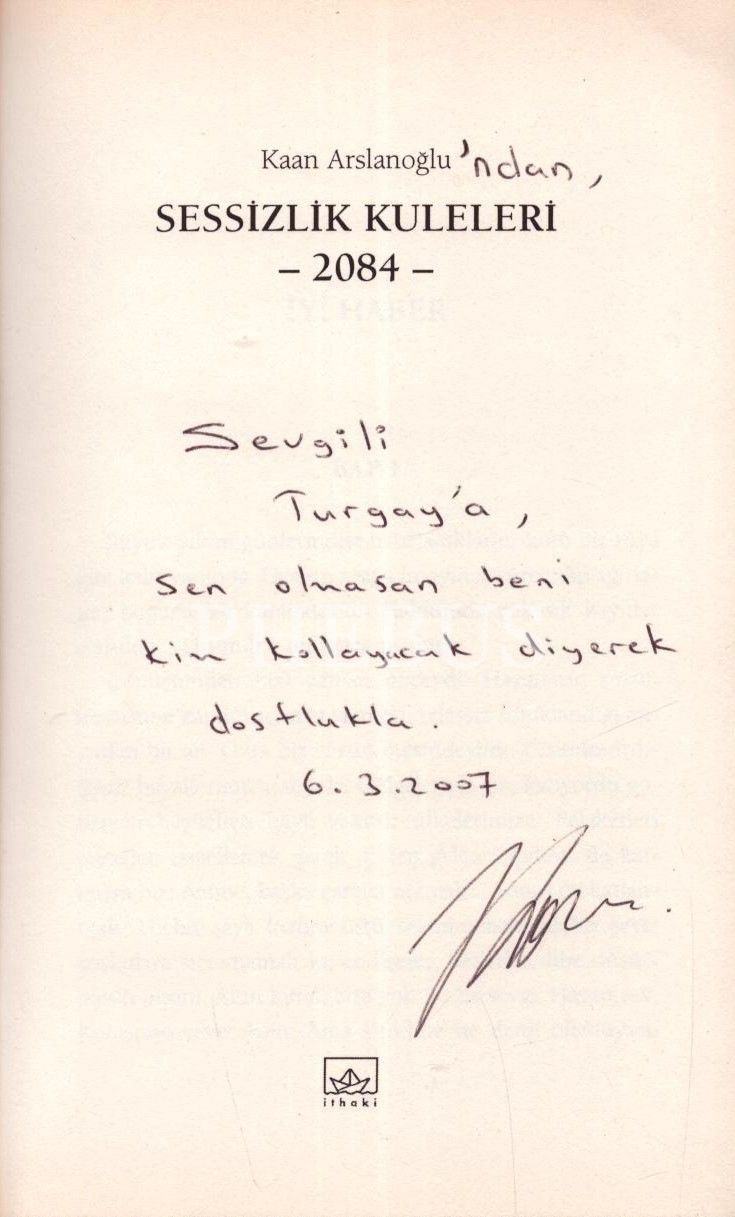 Kaan Arslanoğlu'ndan,
SESSİZLİK KULELERİ
– 2084 –
İYİ HABER
Sevgili
Turgay'a,
Sen olmasan beni
kim kollayacak diyerek
dostlukla.
6.3.2007
Kaan.
ithaki